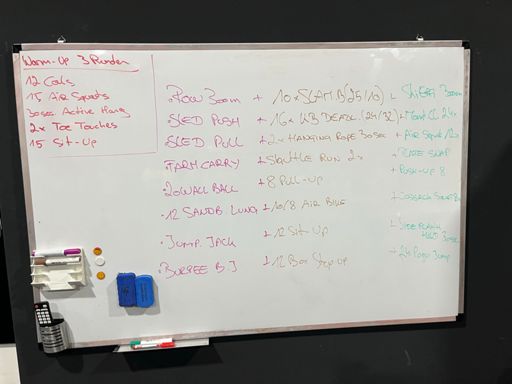 Warm-Up 3 Runden
12 Cals
15 Air Squats
30sec Active Hang
2x Toe Touches
15 Sit-Up
·Row 300m + 10x SLAM B(25/10) + Ski Erg 300m
·SLED PUSH + 16x KB DEADL. (24/32) + Mount. CL 24x
·SLED PULL + 2x HANGING ROPE 30sec + Air Squat 120
·FARM CARRY + SHUTTLE RUN 2x
·20 WALL BALL + 8 PULL-UP + PUSH-UP 8
·12 SANDB. LUNG + 10/8 AIR BIKE
·JUMP. JACK + 12 Sit-Up + SIDE PLANK HOLD 30sec
·BURPEE B.J + 12 Box Step Up